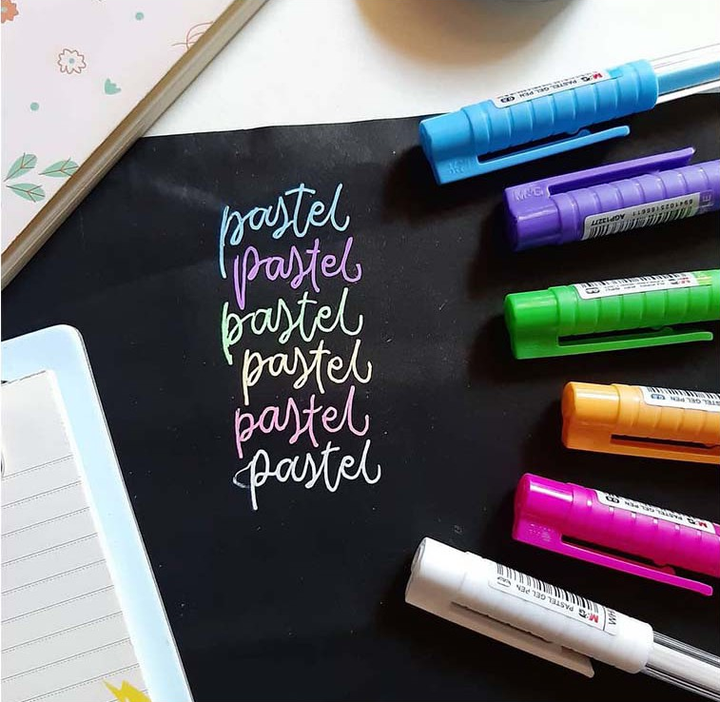 pastel
pastel
pastel
pastel
pastel
pastel
M&G PASTEL GEL PEN
M&G
AGP13277
PASTEL GEL PEN
PASTEL GEL PEN
M&G PASTEL GEL PEN